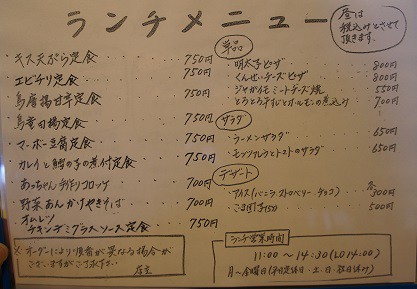 ランチメニュー
昼は
税込みとさせて
頂きます。
キス天ぷら定食 750円
エビチリ定食 750円
鳥唐揚甘辛定食 750円
鳥竜田揚定食 750円
マーボー豆腐定食 750円
カレイと鱈の子の煮付定食 750円
あっちゃん手作りコロッケ 700円
野菜あんかけやきそば 700円
オムレツ
チキンデミグラスソース定食 750円
※オーダーにより順番が異なる場合が
ございますがご了承下さい
店主
単品
明太子ピザ 800円
くんせいチーズピザ 800円
ジャガイモミートチーズ焼 550円
とろとろすじとホルモンの煮込み 700円
サラダ
ラーメンサラダ 650円
モッツァレラとトマトのサラダ 650円
デザート
アイス(バニラ・ストロベリー・チョコ) 各300円
ごま団子 500円
ランチ営業時間
11:00～14:30(LO14:00)
月～金曜日(平日定休日・土・日・祝日休み)